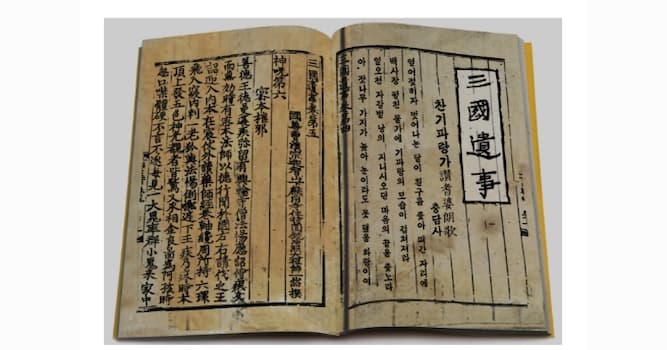 三國遺事
찬기파랑가讚耆婆朗歌
충담사
열어젖히자 벗어나는 달이 흰구름 좇아 떠간 자리에
백사장 펼친 물가에 기파랑의 모습이 잠겨져라
일오천 자갈벌 낭의 지니시오던 마음의 끝을 좇노라
아, 잣나무 가지가 높아 눈이라도 못 덮을 화랑이여
三國遺事卷第四
三國遺事卷第五
國尊曹溪宗迦智山下麟角寺住持圓鏡冲照大禪師一然撰
神呪第六
密本摧邪
善德王德曼遘疾彌留有興輪寺僧法惕應詔侍疾久
而無効時有密本法師以德行聞於國左右請代之王
詔迎入內本在宸仗外讀藥師經卷軸纔周所持六環
飛入寢內刺一老狐與法惕倒擲庭下王疾乃瘳時本
頂上發五色神光覩者皆驚又承相金良圖爲阿孩時
忽口噤體硬不言不遂每見一大鬼率群小鬼來家中